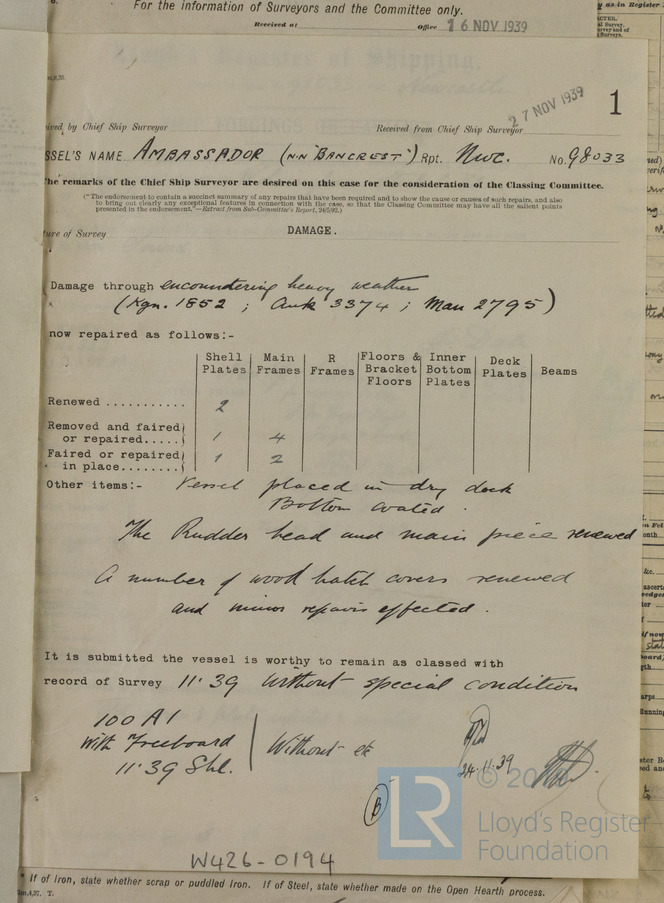 For the information of Surveyors and the Committee only.
Received at Office 16 NOV 1939
27 NOV 1939
1
ived by Chief Ship Surveyor Received from Chief Ship Surveyor
SSEL'S NAME AMBASSADOR (N.N "BANCREST") Rpt. Nwc. No. 98033
he remarks of the Chief Ship Surveyor are desired on this case for the consideration of the Classing Committee.
("The endorsement to contain a succinct summary of any repairs that have been required and to show the cause or causes of such repairs, and also
to bring out clearly any exceptional features in connection with the case, so that the Classing Committee may have all the salient points
presented in the endorsement."—Extract from Sub-Committee's Report, 24/5/92.)
ture of Survey DAMAGE.
Damage through encountering heavy weather
(Kgn. 1852 ; Auk 3374 ; Man 2795)
now repaired as follows:-
Shell Plates Main Frames R Frames Floors & Bracket Floors Inner Bottom Plates Deck Plates Beams
Renewed ........... 2
Removed and faired
or repaired..... 1 4
Faired or repaired
in place........ 1 2
Other items:- Vessel placed in dry dock
Bottom coated.
The Rudder head and main piece renewed
A number of wood hatch covers renewed
and minor repairs effected.
It is submitted the vessel is worthy to remain as classed with
record of Survey 11.39 without special condition
100 A1
With Freeboard
11.39 Shl.
Without etc
24.11.39
B
© 20
LR
Lloyd's Register
Foundation
W426-0194
* If of Iron, state whether scrap or puddled Iron. If of Steel, state whether made on the Open Hearth process.